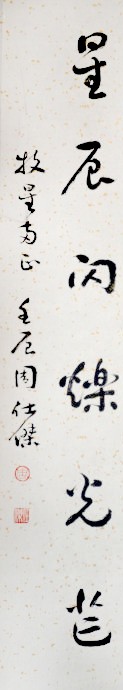 星辰闪烁光芒
牧星方正 壬辰周仕傑